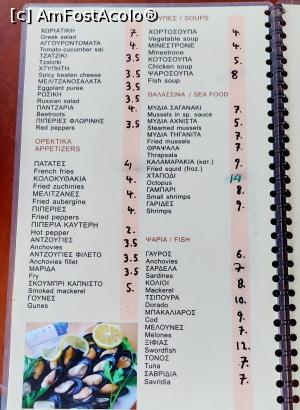 [c] AmFostAcolo®
ΧΩΡΙΑΤΙΚΗ 7.
Greek salad
ΑΓΓΟΥΡΟΝΤΟΜΑΤΑ 4.
Tomato-cucumber sal.
ΤΖΑΤΖΙΚΙ 3.5
Tzatziki
ΧΤΥΠΗΤΗ 3.5
Spicy beaten cheese
ΜΕΛΙΤΖΑΝΟΣΑΛΑΤΑ 3.5
Eggplant puree
ΡΩΣΙΚΗ 3.5
Russian salad
ΠΑΝΤΖΑΡΙΑ 4.
Beetroots
ΠΙΠΕΡΙΕΣ ΦΛΩΡΙΝΗΣ 3.5
Red peppers
ΟΡΕΚΤΙΚΑ
APPETIZERS
ΠΑΤΑΤΕΣ 4
French fries
ΚΟΛΟΚΥΘΑΚΙΑ 4.
Fried zuchinies
ΜΕΛΙΤΖΑΝΕΣ 4.
Fried aubergine
ΠΙΠΕΡΙΕΣ 4.
Fried peppers
ΠΙΠΕΡΙΑ ΚΑΥΤΕΡΗ 2.
Hot pepper
ΑΝΤΖΟΥΓΙΕΣ 3.5
Anchovies
ΑΝΤΖΟΥΓΙΕΣ ΦΙΛΕΤΟ 3.5
Anchovies fillet
ΜΑΡΙΔΑ 3.5
Fry
ΣΚΟΥΜΠΡΙ ΚΑΠΝΙΣΤΟ 5.
Smoked mackerel
ΓΟΥΝΕΣ
Gunes
ΣΟΥΠΕΣ / SOUPS
ΧΟΡΤΟΣΟΥΠΑ 4.
Vegetable soup
ΜΙΝΕΣΤΡΟΝΕ 4.
Minestrone
ΚΟΤΟΣΟΥΠΑ 5.
Chicken soup
ΨΑΡΟΣΟΥΠΑ 8
Fish soup
ΘΑΛΑΣΣΙΝΑ / SEA FOOD
ΜΥΔΙΑ ΣΑΓΑΝΑΚΙ 7.
Mussels in sp. sauce
ΜΥΔΙΑ ΑΧΝΙΣΤΑ 5.
Steamed mussels
ΜΥΔΙΑ ΤΗΓΑΝΗΤΑ 7.
Fried mussels
ΘΡΑΨΑΛΑ 7.
Thrapsala
ΚΑΛΑΜΑΡΑΚΙΑ (κατ.) 9.
Fried squid (froz.)
ΧΤΑΠΟΔΙ 14
Octopus
ΓΑΜΠΑΡΙ 8.
Small shrimps
ΓΑΡΙΔΕΣ 9.
Shrimps
ΨΑΡΙΑ / FISH
ΓΑΥΡΟΣ 6.
Anchovies
ΣΑΡΔΕΛΑ 7.
Sardines
ΚΟΛΙΟΙ 8.
Mackerel
ΤΣΙΠΟΥΡΑ 10.
Dorado
ΜΠΑΚΑΛΙΑΡΟΣ 9.
Cod
ΜΕΛΟΥΝΕΣ 7.
Melones
ΞΙΦΙΑΣ 12.
Swordfish
ΤΟΝΟΣ 7.
Tuna
ΣΑΒΡΙΔΙΑ 7.
Savridia